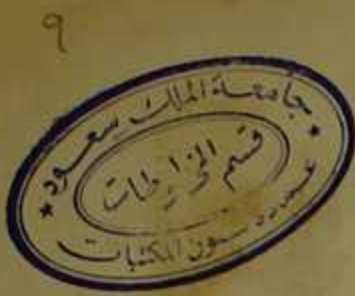 9
جامعة الملك سعود
قسم المخطوطات
عمادة شئون المكتبات